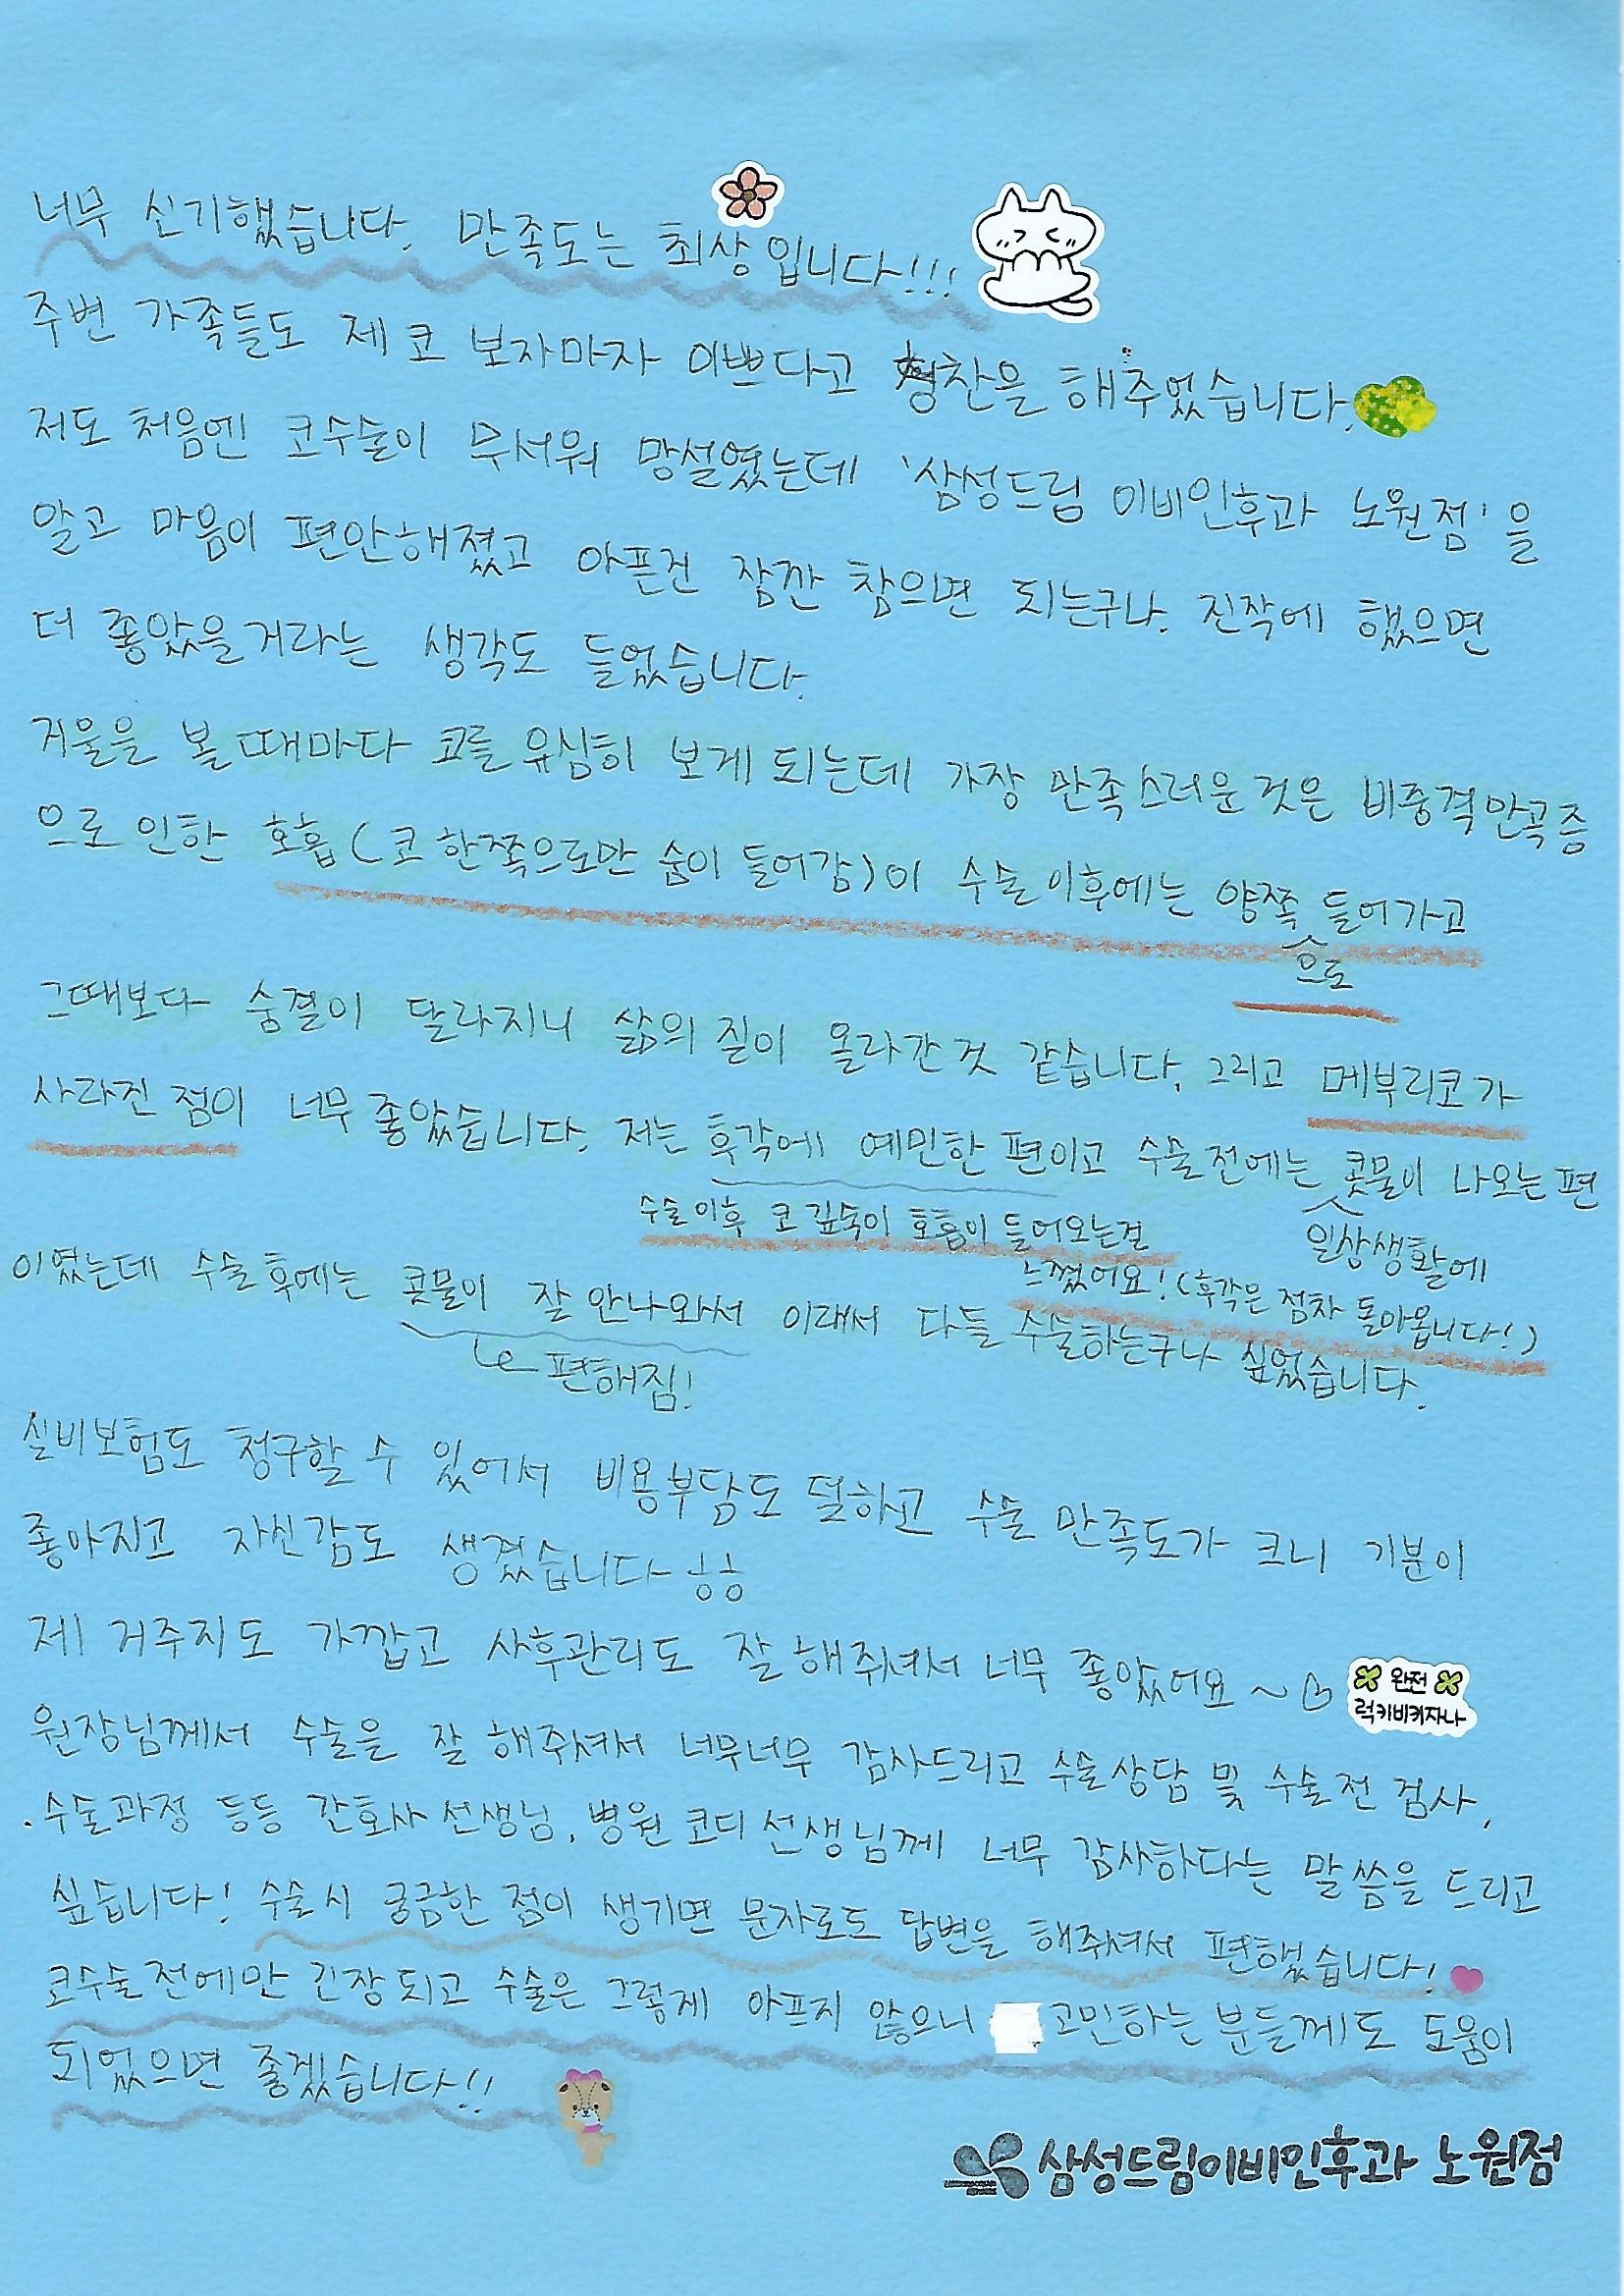 너무 신기했습니다. 만족도는 최상입니다!!!
주변 가족들도 제 코 보자마자 이쁘다고 칭찬을 해주었습니다.
저도 처음엔 코수술이 무서워 망설였는데 '삼성드림 이비인후과 노원점'을
알고 마음이 편안해졌고 아픈건 잠깐 참으면 되는구나. 진작에 했으면
더 좋았을거라는 생각도 들었습니다.
거울을 볼때마다 코를 유심히 보게 되는데 가장 만족스러운것은 비중격만곡증
으로 인한 호흡(코 한쪽으로만 숨이 들어감)이 수술이후에는 양쪽 들어가고
으로
그때보다 숨결이 달라지니 삶의 질이 올라간것 같습니다. 그리고 메부리코가
사라진 점이 너무 좋았습니다. 저는 후각에 예민한 편이고 수술전에는 콧물이 나오는편
일상생활에
수술이후 코 깊숙이 호흡이 들어오는걸
느꼈어요!(후각은 점차 돌아옵니다!)
이였는데 수술후에는 콧물이 잘 안나와서 이래서 다들 수술하는구나 싶었습니다.
편해짐!
실비보험도 청구할 수 있어서 비용부담도 덜하고 수술 만족도가 크니 기분이
좋아지고 자신감도 생겼습니다ㅎㅎ
제 거주지도 가깝고 사후관리도 잘해줘셔서 너무 좋았어요~
완전
럭키비키자나
원장님께서 수술을 잘 해주셔서 너무너무 감사드리고 수술상담 및 수술전 검사,
.수술과정 등등 간호사선생님, 병원 코디선생님께 너무 감사하다는 말씀을 드리고
싶습니다! 수술시 궁금한 점이 생기면 문자로도 답변을 해줘셔서 편했습니다!
코수술전에만 긴장되고 수술은 그렇게 아프지 않으니 고민하는분들께도 도움이
되었으면 좋겠습니다!!
삼성드림이비인후과 노원점